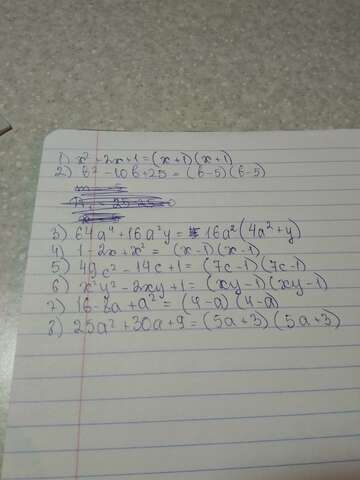 1) x² - 2x+1=(x+1)(x+1)
2) b² -10b+25 = (b-5)(b-5)
3) 64a⁴+16a²y = 16a²(4a²+y)
4) 1-2x+x² = (x-1)(x-1)
5) 49c²-14c+1=(7c-1)(7c-1)
6) x²y²-2xy+1=(xy-1)(xy-1)
7) 16-8a+a²=(4-a)(4-a)
8) 25a²+30a+9=(5a+3)(5a+3)